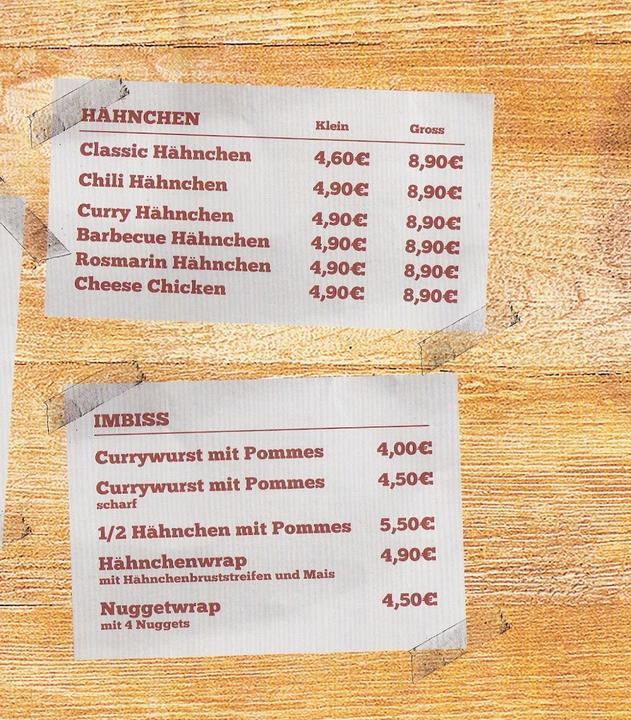 HÄHNCHEN Klein Gross
Classic Hähnchen 4,60€ 8,90€
Chili Hähnchen 4,90€ 8,90€
Curry Hähnchen 4,90€ 8,90€
Barbecue Hähnchen 4,90€ 8,90€
Rosmarin Hähnchen 4,90€ 8,90€
Cheese Chicken 4,90€ 8,90€
IMBISS
Currywurst mit Pommes 4,00€
Currywurst mit Pommes 4,50€
scharf
1/2 Hähnchen mit Pommes 5,50€
Hähnchenwrap 4,90€
mit Hähnchenbruststreifen und Mais
Nuggetwrap 4,50€
mit 4 Nuggets